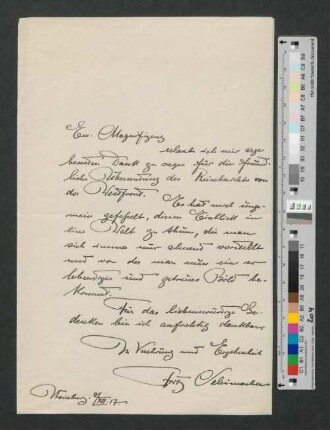 Ew. Magnifizenz
erlaube ich mir erge-
bensten Dank zu sagen für die freund-
liche Übersendung des Reiseberichts von
der Westfront.
Es hat mich unge-
mein gefesselt, diesen Einblick in
eine Welt zu thun, die man
sich immer nur ahnend vorstellt
und von der man nun ein so
lebendiges und getreues Bild be-
kommt.
Für das liebenswürdige Ge-
denken bin ich aufrichtig dankbar
In Verehrung und Ergebenheit
Fritz Schumacher
Hamburg /XII. 17.